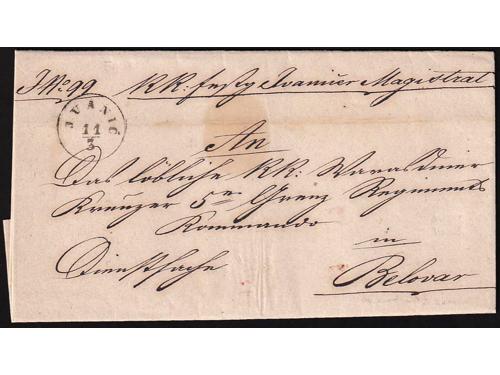 J No. 99 KK: festg Ivanićer Magistrat
IVANIĆ
11
3
An
Das löbliche KK: Warasdiner
Kreuzer 5er Grenz Regiments
Kommando
in
Dienstsache
Belovar